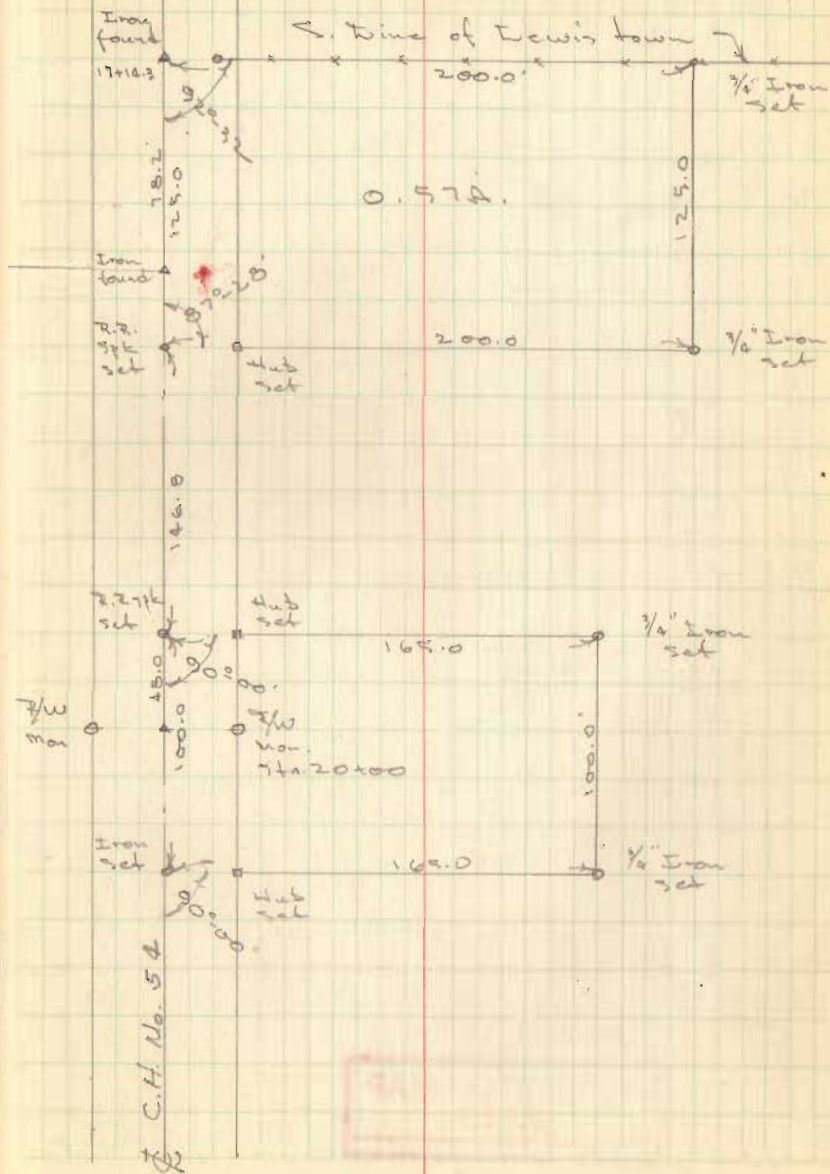 Iron
found
S. Line of Lewis town
17+14.3
200.0'
3/4" Iron
set
92°-32'
78.2'
125.0
0.57A.
125.0
Iron
found
87°-28'
R.R.
spk
set
Hub
set
200.0
3/4" Iron
set
146.8
R.R. spk
set
Hub
set
165.0
3/4" Iron
set
90°-00'
48.0
100.0
R/W
mon
R/W
mon.
Sta. 20+00
100.0'
Iron
set
165.0
3/4" Iron
set
90°-00
Hub
set
C.H. No. 54